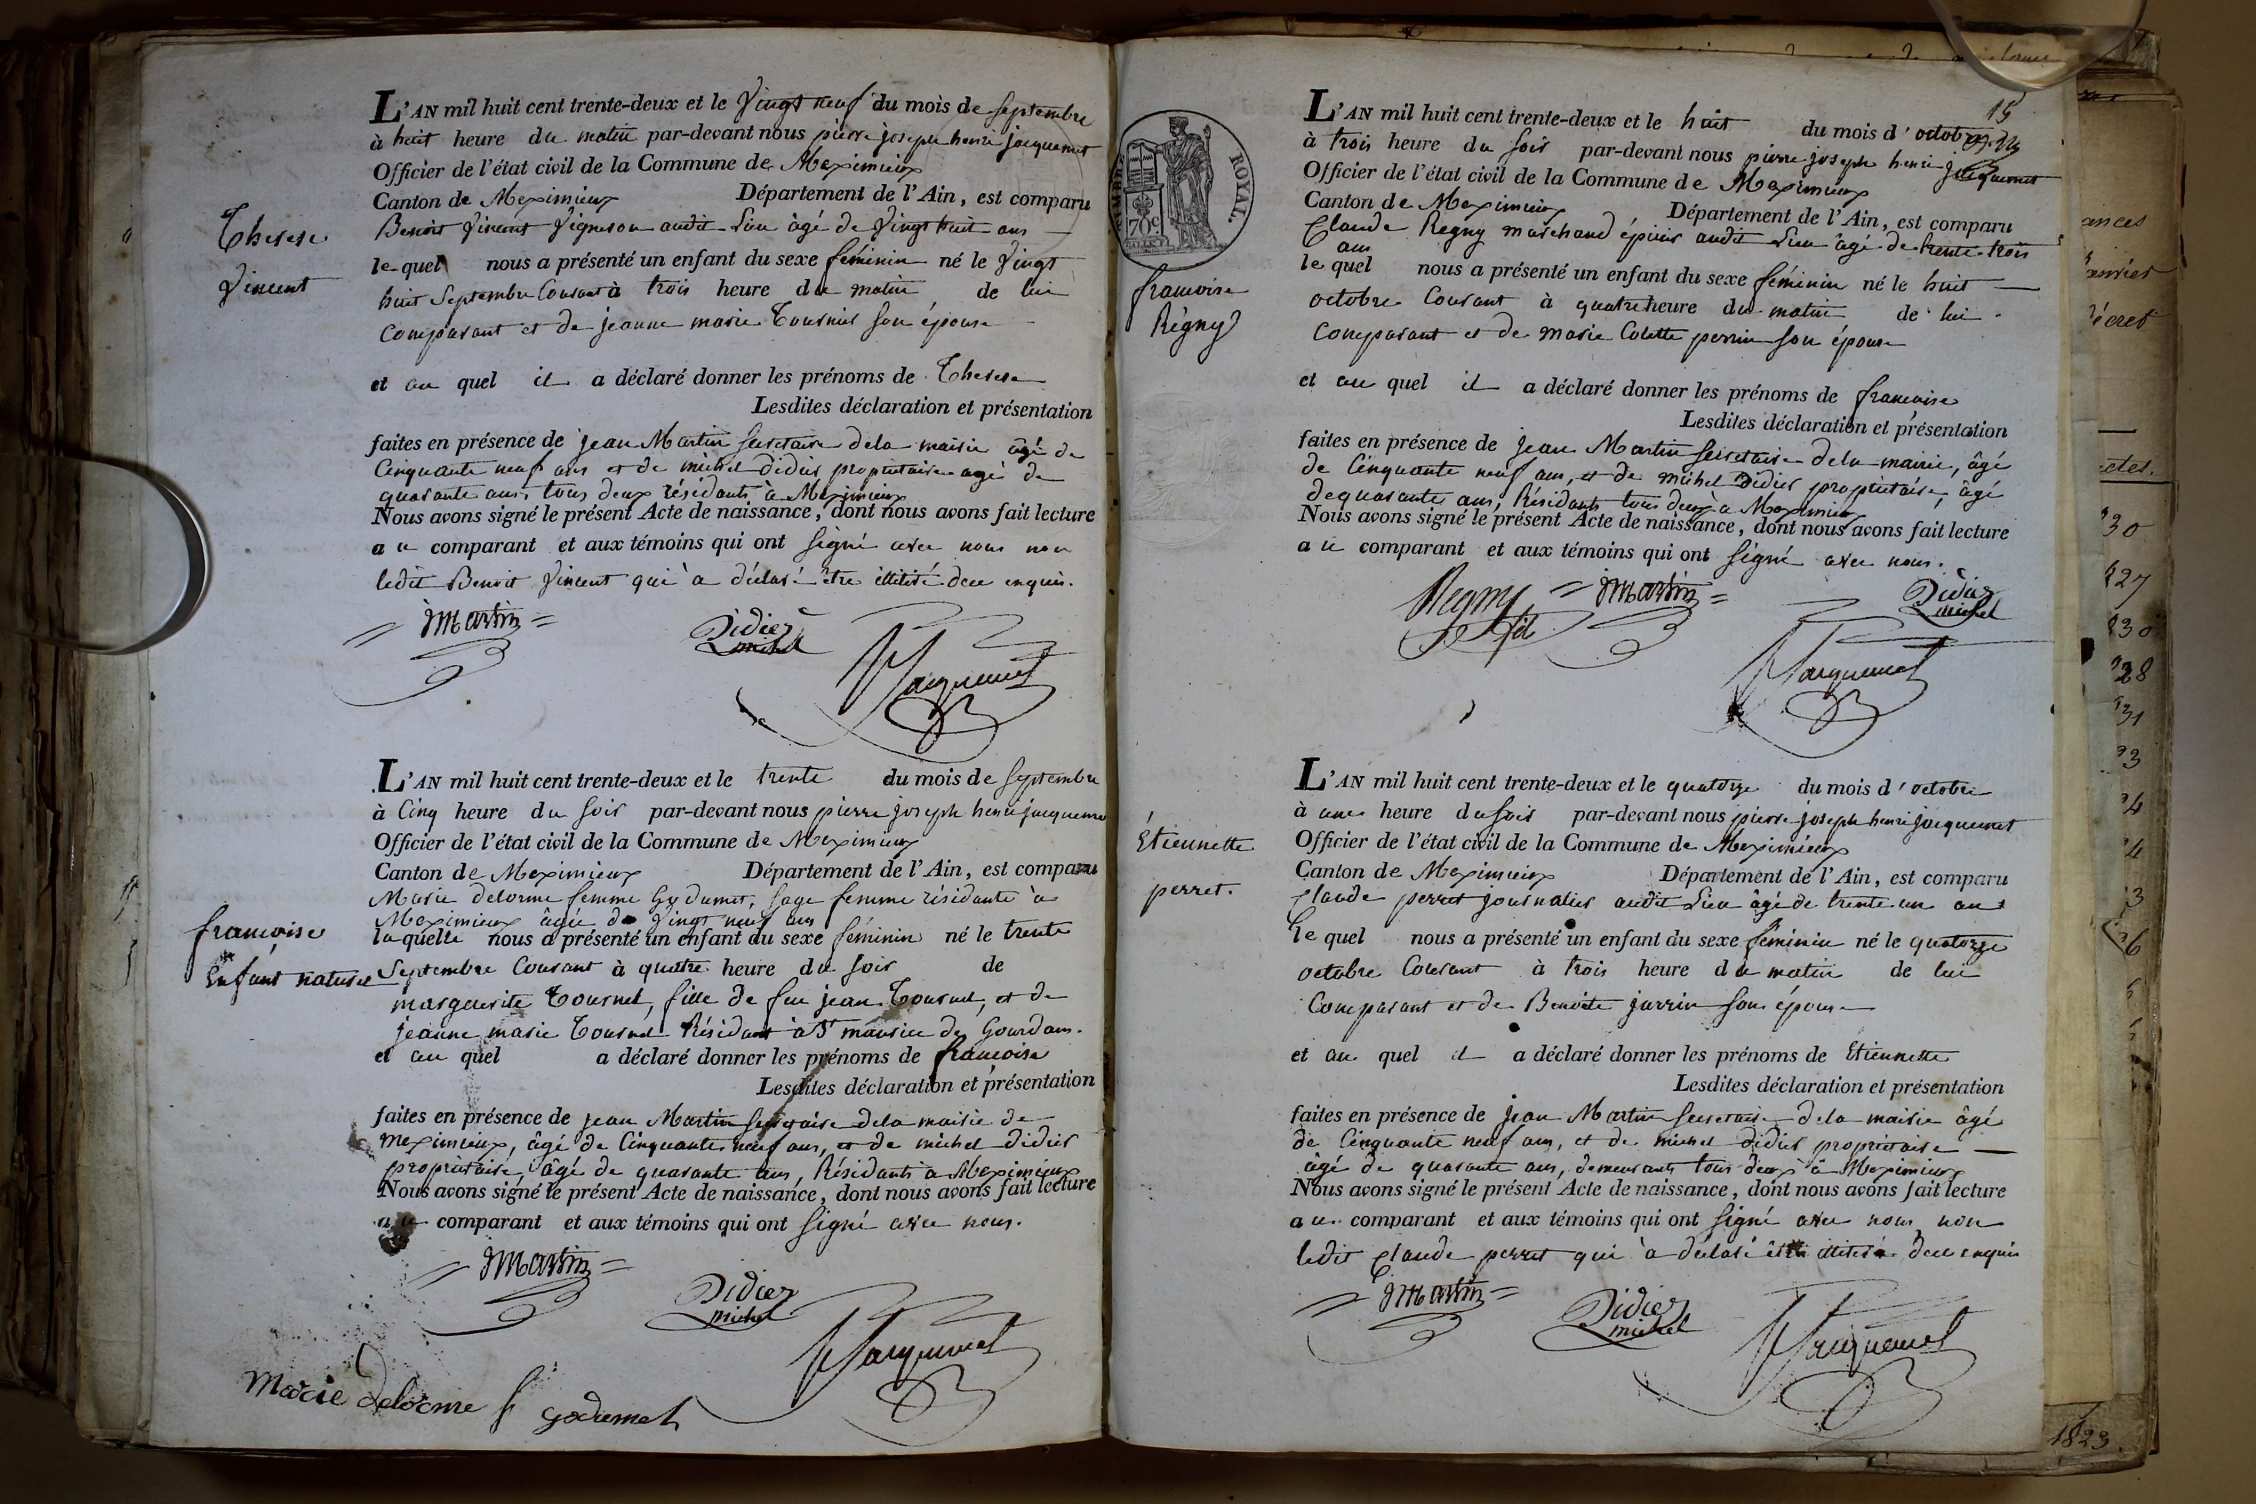 Therese
Vincent
L'AN mil huit cent trente-deux et le Vingt neuf du mois de Septembre
à huit heure du matin par-devant nous pierre joseph henri jacquemet
Officier de l'état civil de la Commune de Meximieux
Canton de Meximieux Département de l'Ain, est comparu
Benoit Vincent Vigneron audit Lieu âgé de Vingt huit ans
le quel nous a présenté un enfant du sexe féminin né le Vingt
huit Septembre Courant à trois heure du matin de lui
Comparant et de jeanne marie Tournier son épouse
et au quel il a déclaré donner les prénoms de Therese
Lesdites déclaration et présentation
faites en présence de jean Martin Secretaire dela mairie âgé de
Cinquante neuf ans et de michel Didier propriétaire agé de
quarante ans, tous deux résidants à Meximieux
Nous avons signé le présent Acte de naissance, dont nous avons fait lecture
au comparant et aux témoins qui ont Signé avec nous non
ledit Benoit Vincent qui a déclaré être illitéré de ce enquis.
JMartin
Didier
michel
Jacquemet
francoise
Enfant naturel
L'AN mil huit cent trente-deux et le trente du mois de Septembre
à Cinq heure du Soir par-devant nous pierre joseph henri jacquemet
Officier de l'état civil de la Commune de Meximieux
Canton de Meximieux Département de l'Ain, est comparu
Marie delorme femme Godumet, Sage femme résidante à
Meximieux âgée de Vingt neuf ans
laquelle nous a présenté un enfant du sexe féminin né le trente
Septembre Courant à quatre heure du Soir de
marguerite Tournel, fille de feu jean Tournel, et de
jeanne marie Tournel Résidant à St maurice de Gourdans.
et au quel a déclaré donner les prénoms de francoise
Lesdites déclaration et présentation
faites en présence de jean Martin Secretaire dela mairie de
meximieux, âgé de Cinquante neuf ans, et de michel didier
propriétaire, âgé de quarante ans, Résidants a Meximieux
Nous avons signé le présent Acte de naissance, dont nous avons fait lecture
au comparant et aux témoins qui ont Signé avec nous.
JMartin
Didier
michel
Jacquemet
Marie delorme f godumet
15
TIMBRE ROYAL.
70c
francoise
Régny
L'AN mil huit cent trente-deux et le huit du mois d'octobre
à trois heure du Soir par-devant nous pierre joseph henri jacquemet
Officier de l'état civil de la Commune de Meximieux
Canton de Meximieux Département de l'Ain, est comparu
Claude Regny marchand épicier audit Lieu âgé de trente trois
ans
le quel nous a présenté un enfant du sexe féminin né le huit
octobre Courant à quatre heure du matin de lui
Comparant et de marie Colette perrin son épouse
et au quel il a déclaré donner les prénoms de francoise
Lesdites déclaration et présentation
faites en présence de jean Martin Secretaire dela mairie, âgé
de Cinquante neuf ans, et de michel Didier propriétaire, âgé
de quarante ans, Résidants tous deux à Meximieux
Nous avons signé le présent Acte de naissance, dont nous avons fait lecture
au comparant et aux témoins qui ont Signé avec nous.
Regny fil
JMartin
Didier
michel
Jacquemet
Étiennette
perret.
L'AN mil huit cent trente-deux et le quatorze du mois d'octobre
à une heure du Soir par-devant nous pierre joseph henri jacquemet
Officier de l'état civil de la Commune de Meximieux
Canton de Meximieux Département de l'Ain, est comparu
Claude perret journalier audit Lieu âgé de trente un ans
le quel nous a présenté un enfant du sexe féminin né le quatorze
octobre Courant à trois heure du matin de lui
Comparant et de Benoite jarrin son épouse
et au quel il a déclaré donner les prénoms de Etiennette
Lesdites déclaration et présentation
faites en présence de jean Martin Secretaire dela mairie âgé
de Cinquante neuf ans, et de michel didier propriétaire
âgé de quarante ans, demeurants tous deux à Meximieux
Nous avons signé le présent Acte de naissance, dont nous avons fait lecture
au comparant et aux témoins qui ont Signé avec nous non
ledit Claude perret qui a déclaré être illitéré de ce enquis
JMartin
Didier
michel
Jacquemet
1823.